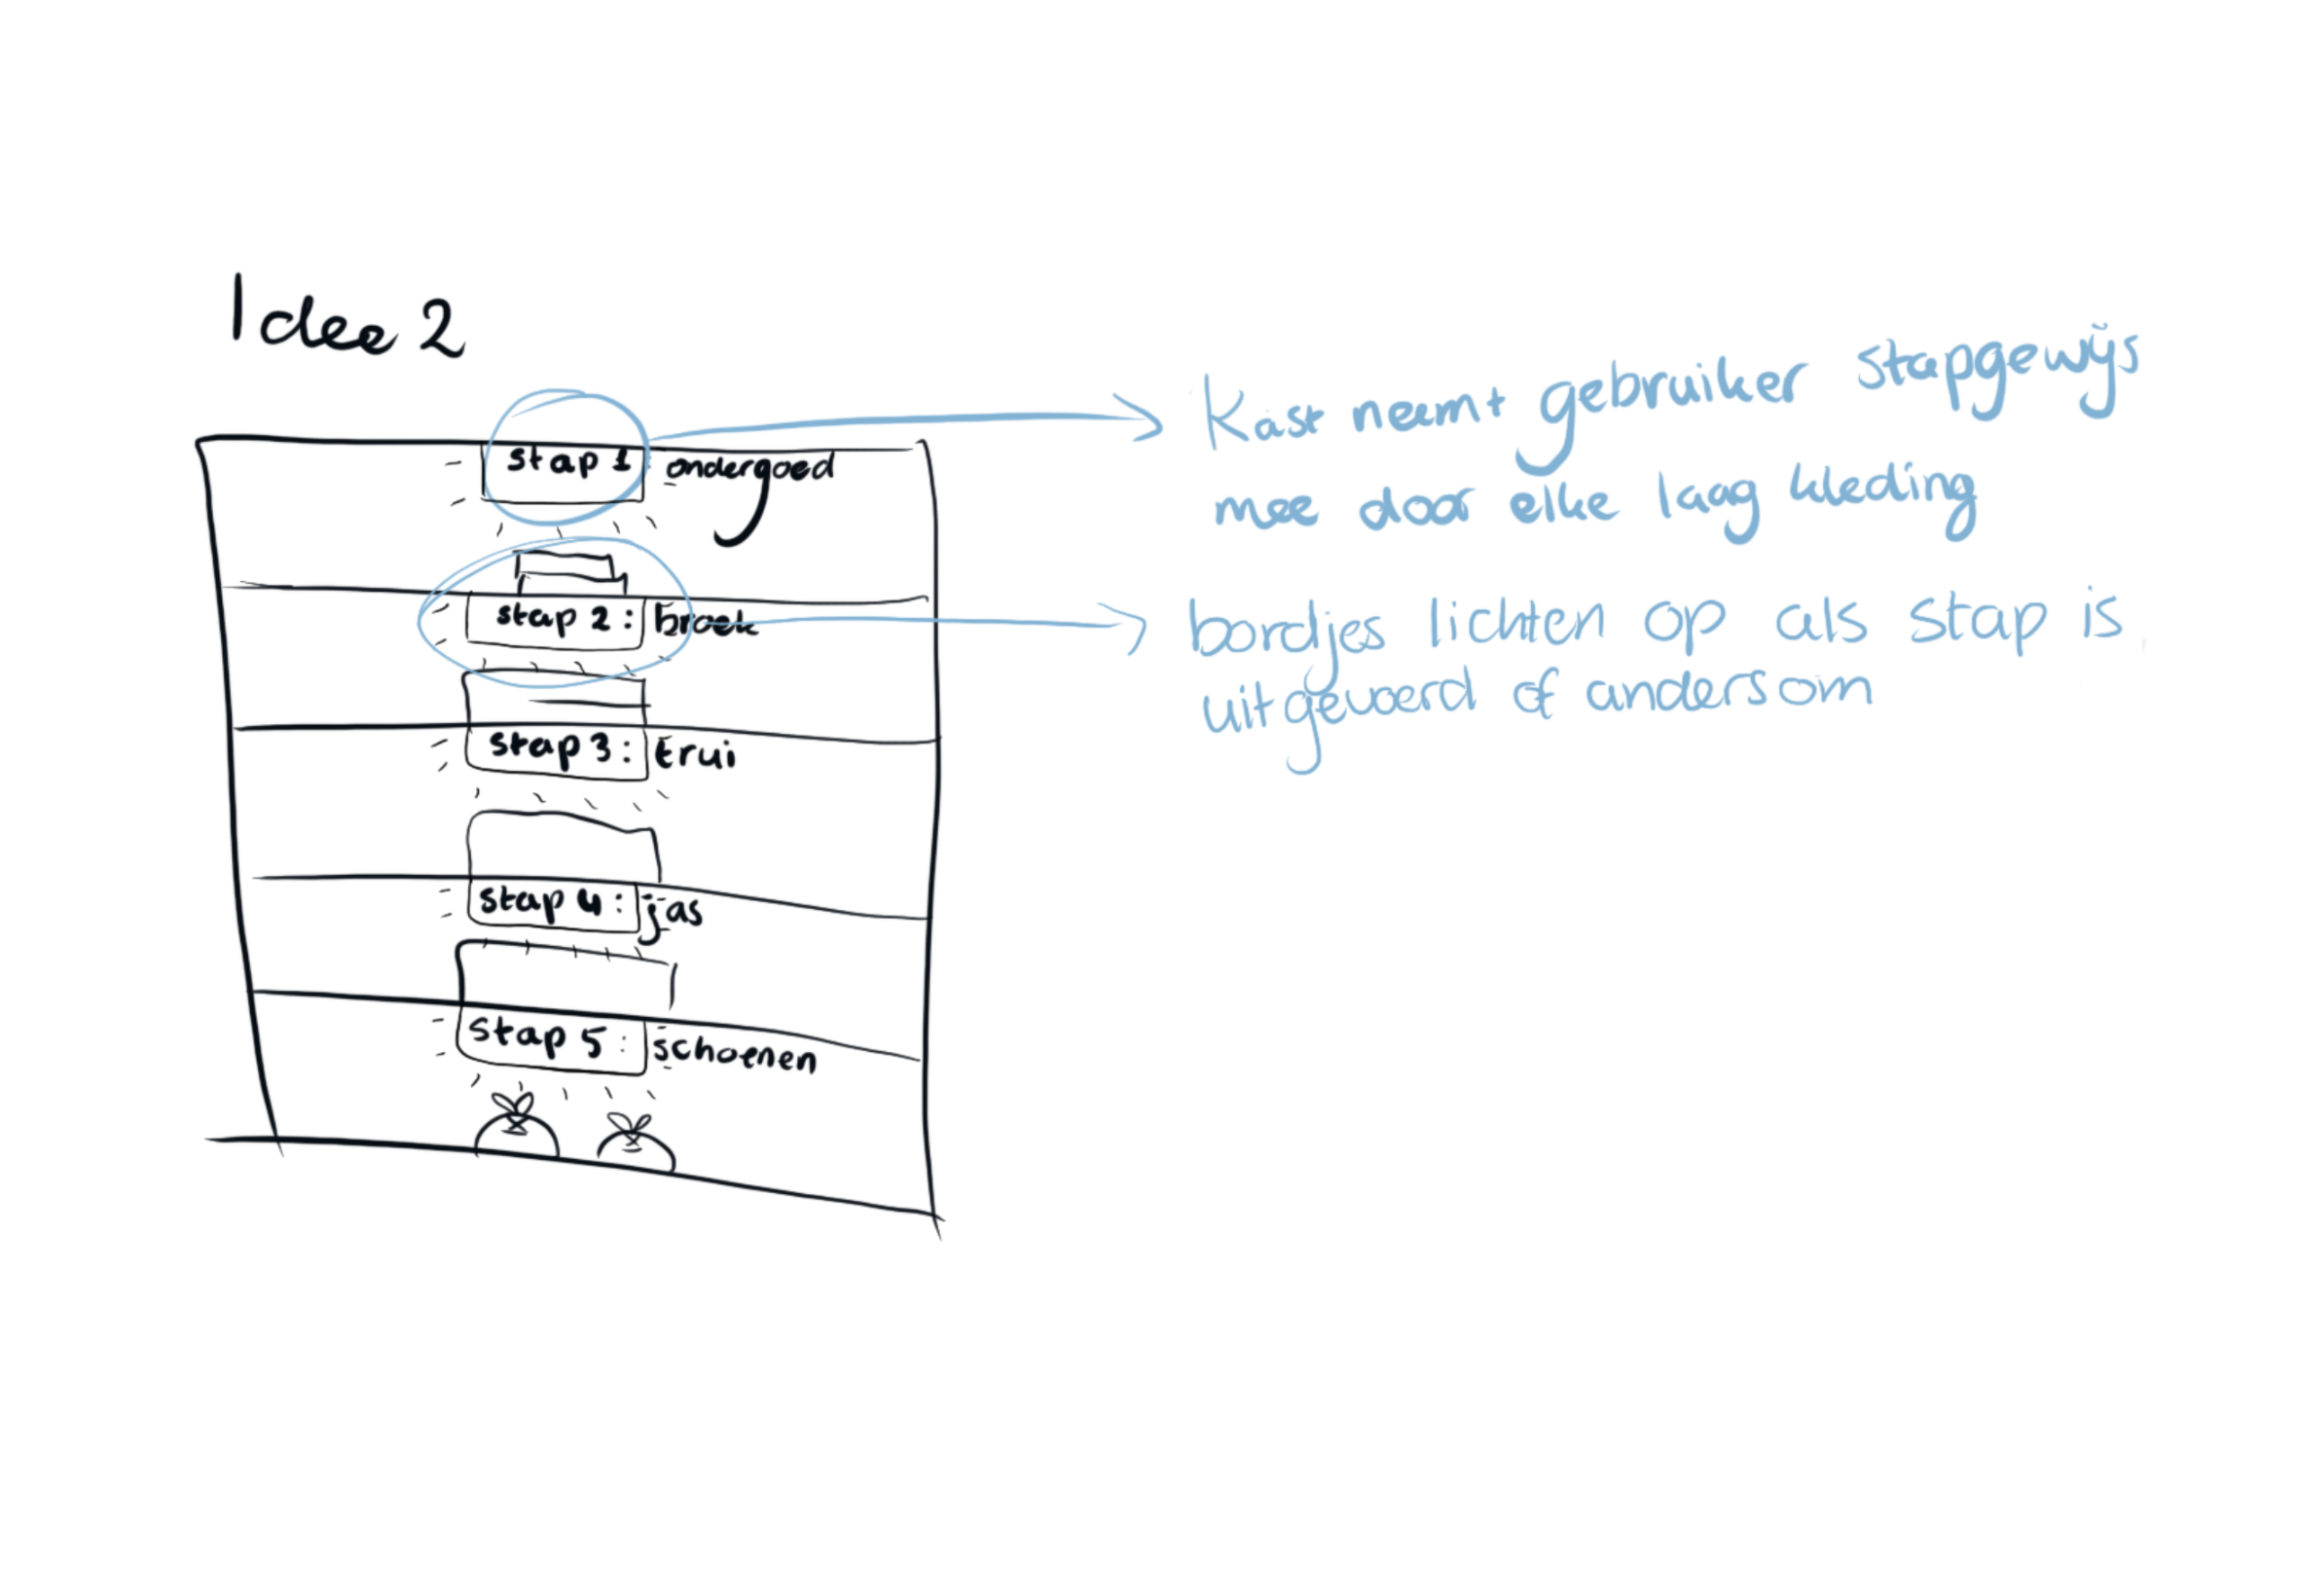 Idee 2
stap 1 ondergoed
stap 2 : broek
stap 3 : trui
stap 4 : jas
stap 5 : schoenen
Kast neemt gebruiker stapgewijs
mee door elke laag kleding
bordjes lichten op als stap is
uitgevoerd of andersom